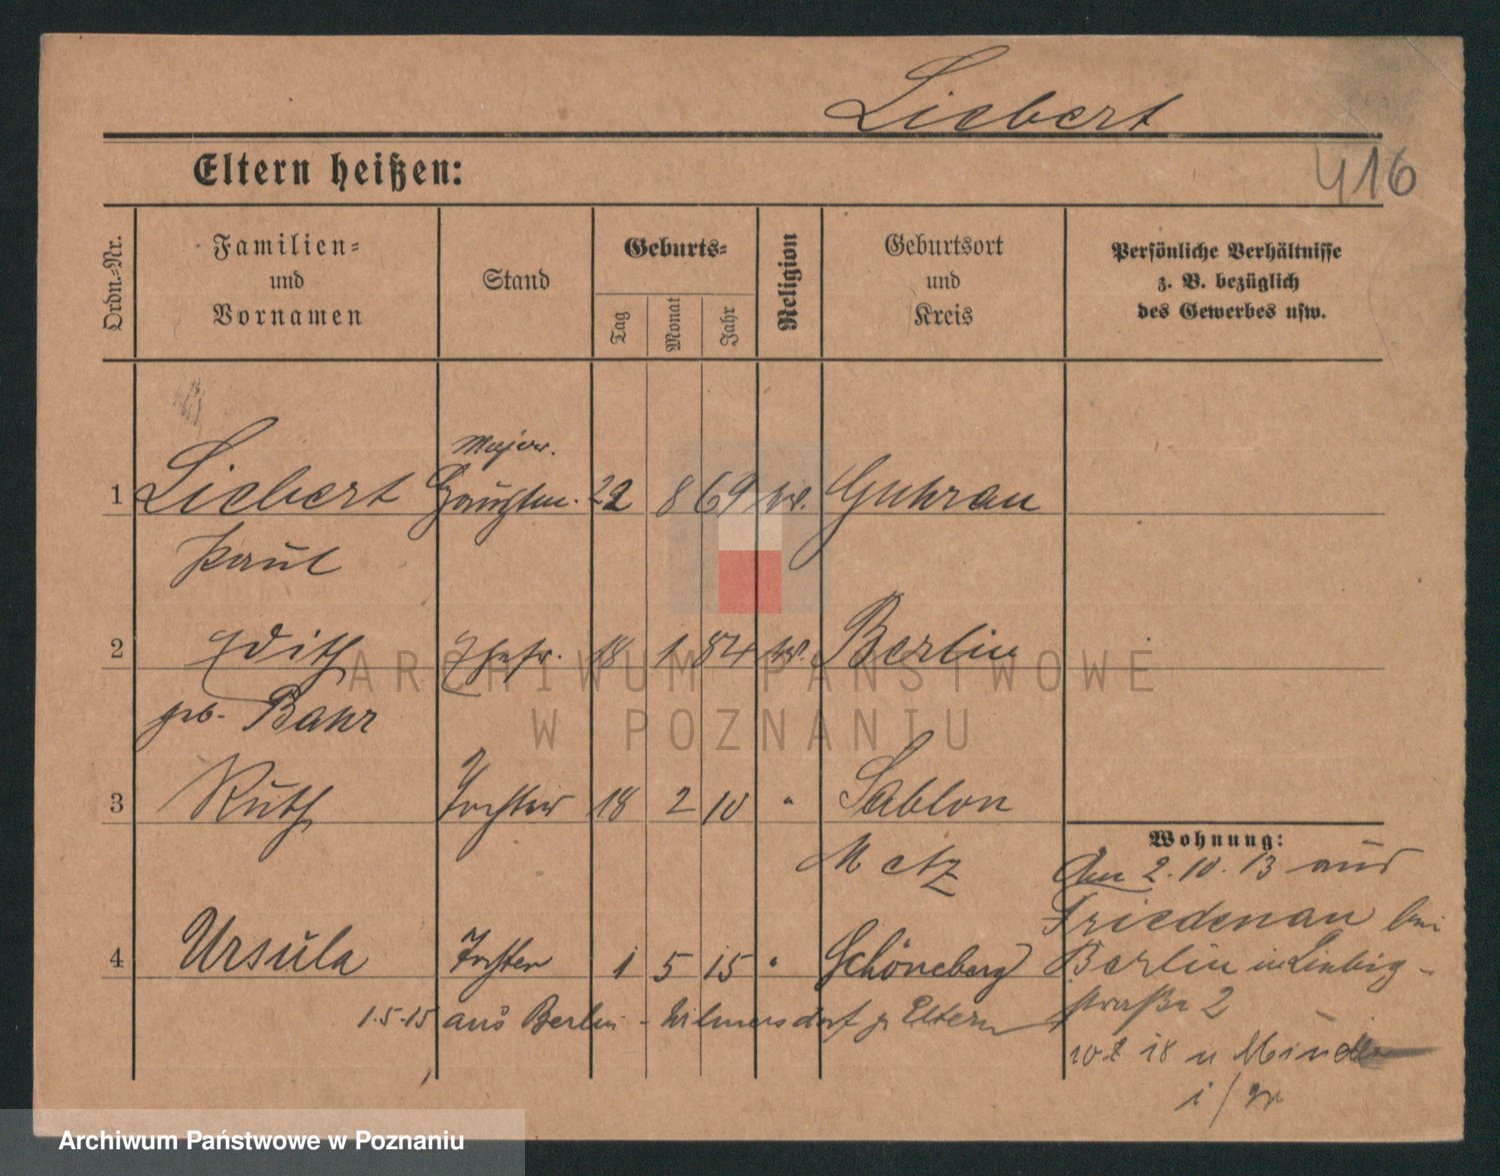 Liebert
Eltern heißen:
416
Ordn.=Nr.
Familien=
und
Vornamen
Stand
Geburts=
Tag
Monat
Jahr
Religion
Geburtsort
und
Kreis
Persönliche Verhältnisse
z. B. bezüglich
des Gewerbes usw.
Major.
1 Liebert Hauptm. 22 8 69 ev. Guhrau
Paul
2 Edith Ehefr. 18 1 84 ev. Berlin
geb. Bahr
3 Ruth Tochter 18 2 10 " Sablon
Metz
4 Ursula Tochter 1 5 15 " Schöneberg
1.5.15 aus Berlin - Wilmersdorf z. Eltern
Wohnung:
Am 2.10.13 aus
Friedenau bei
Berlin
straße 2
18 n Minden
i/W
ARCHIWUM PAŃSTWOWE
W POZNANIU
Archiwum Państwowe w Poznaniu